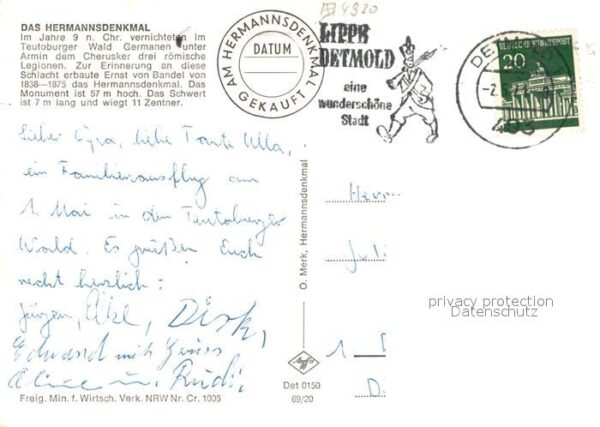 DAS HERMANNSDENKMAL
Im Jahre 9 n. Chr. vernichteten im
Teutoburger Wald Germanen unter
Armin dem Cherusker drei römische
Legionen. Zur Erinnerung an diese
Schlacht erbaute Ernst von Bandel von
1838—1875 das Hermannsdenkmal. Das
Monument ist 57 m hoch. Das Schwert
ist 7 m lang und wiegt 11 Zentner.
AM HERMANNSDENKMAL
DATUM
GEKAUFT
4930
LIPPE
DETMOLD
eine
wunderschöne
Stadt
DEUTSCHE BUNDESPOST
20
Lieber Opa, liebe Tante Ulla,
ein Familienausflug am
1. Mai in den Teutoburger
Wald. Es grüßen Euch
recht herzlich:
Jürgen, Dirk,
Eduard mit
u. Rudi
O. Merk, Hermannsdenkmal
Herrn
1
D
privacy protection
Datenschutz
Agfa
Det 0150
69/20
Freig. Min. f. Wirtsch. Verk. NRW Nr. Cr. 1006